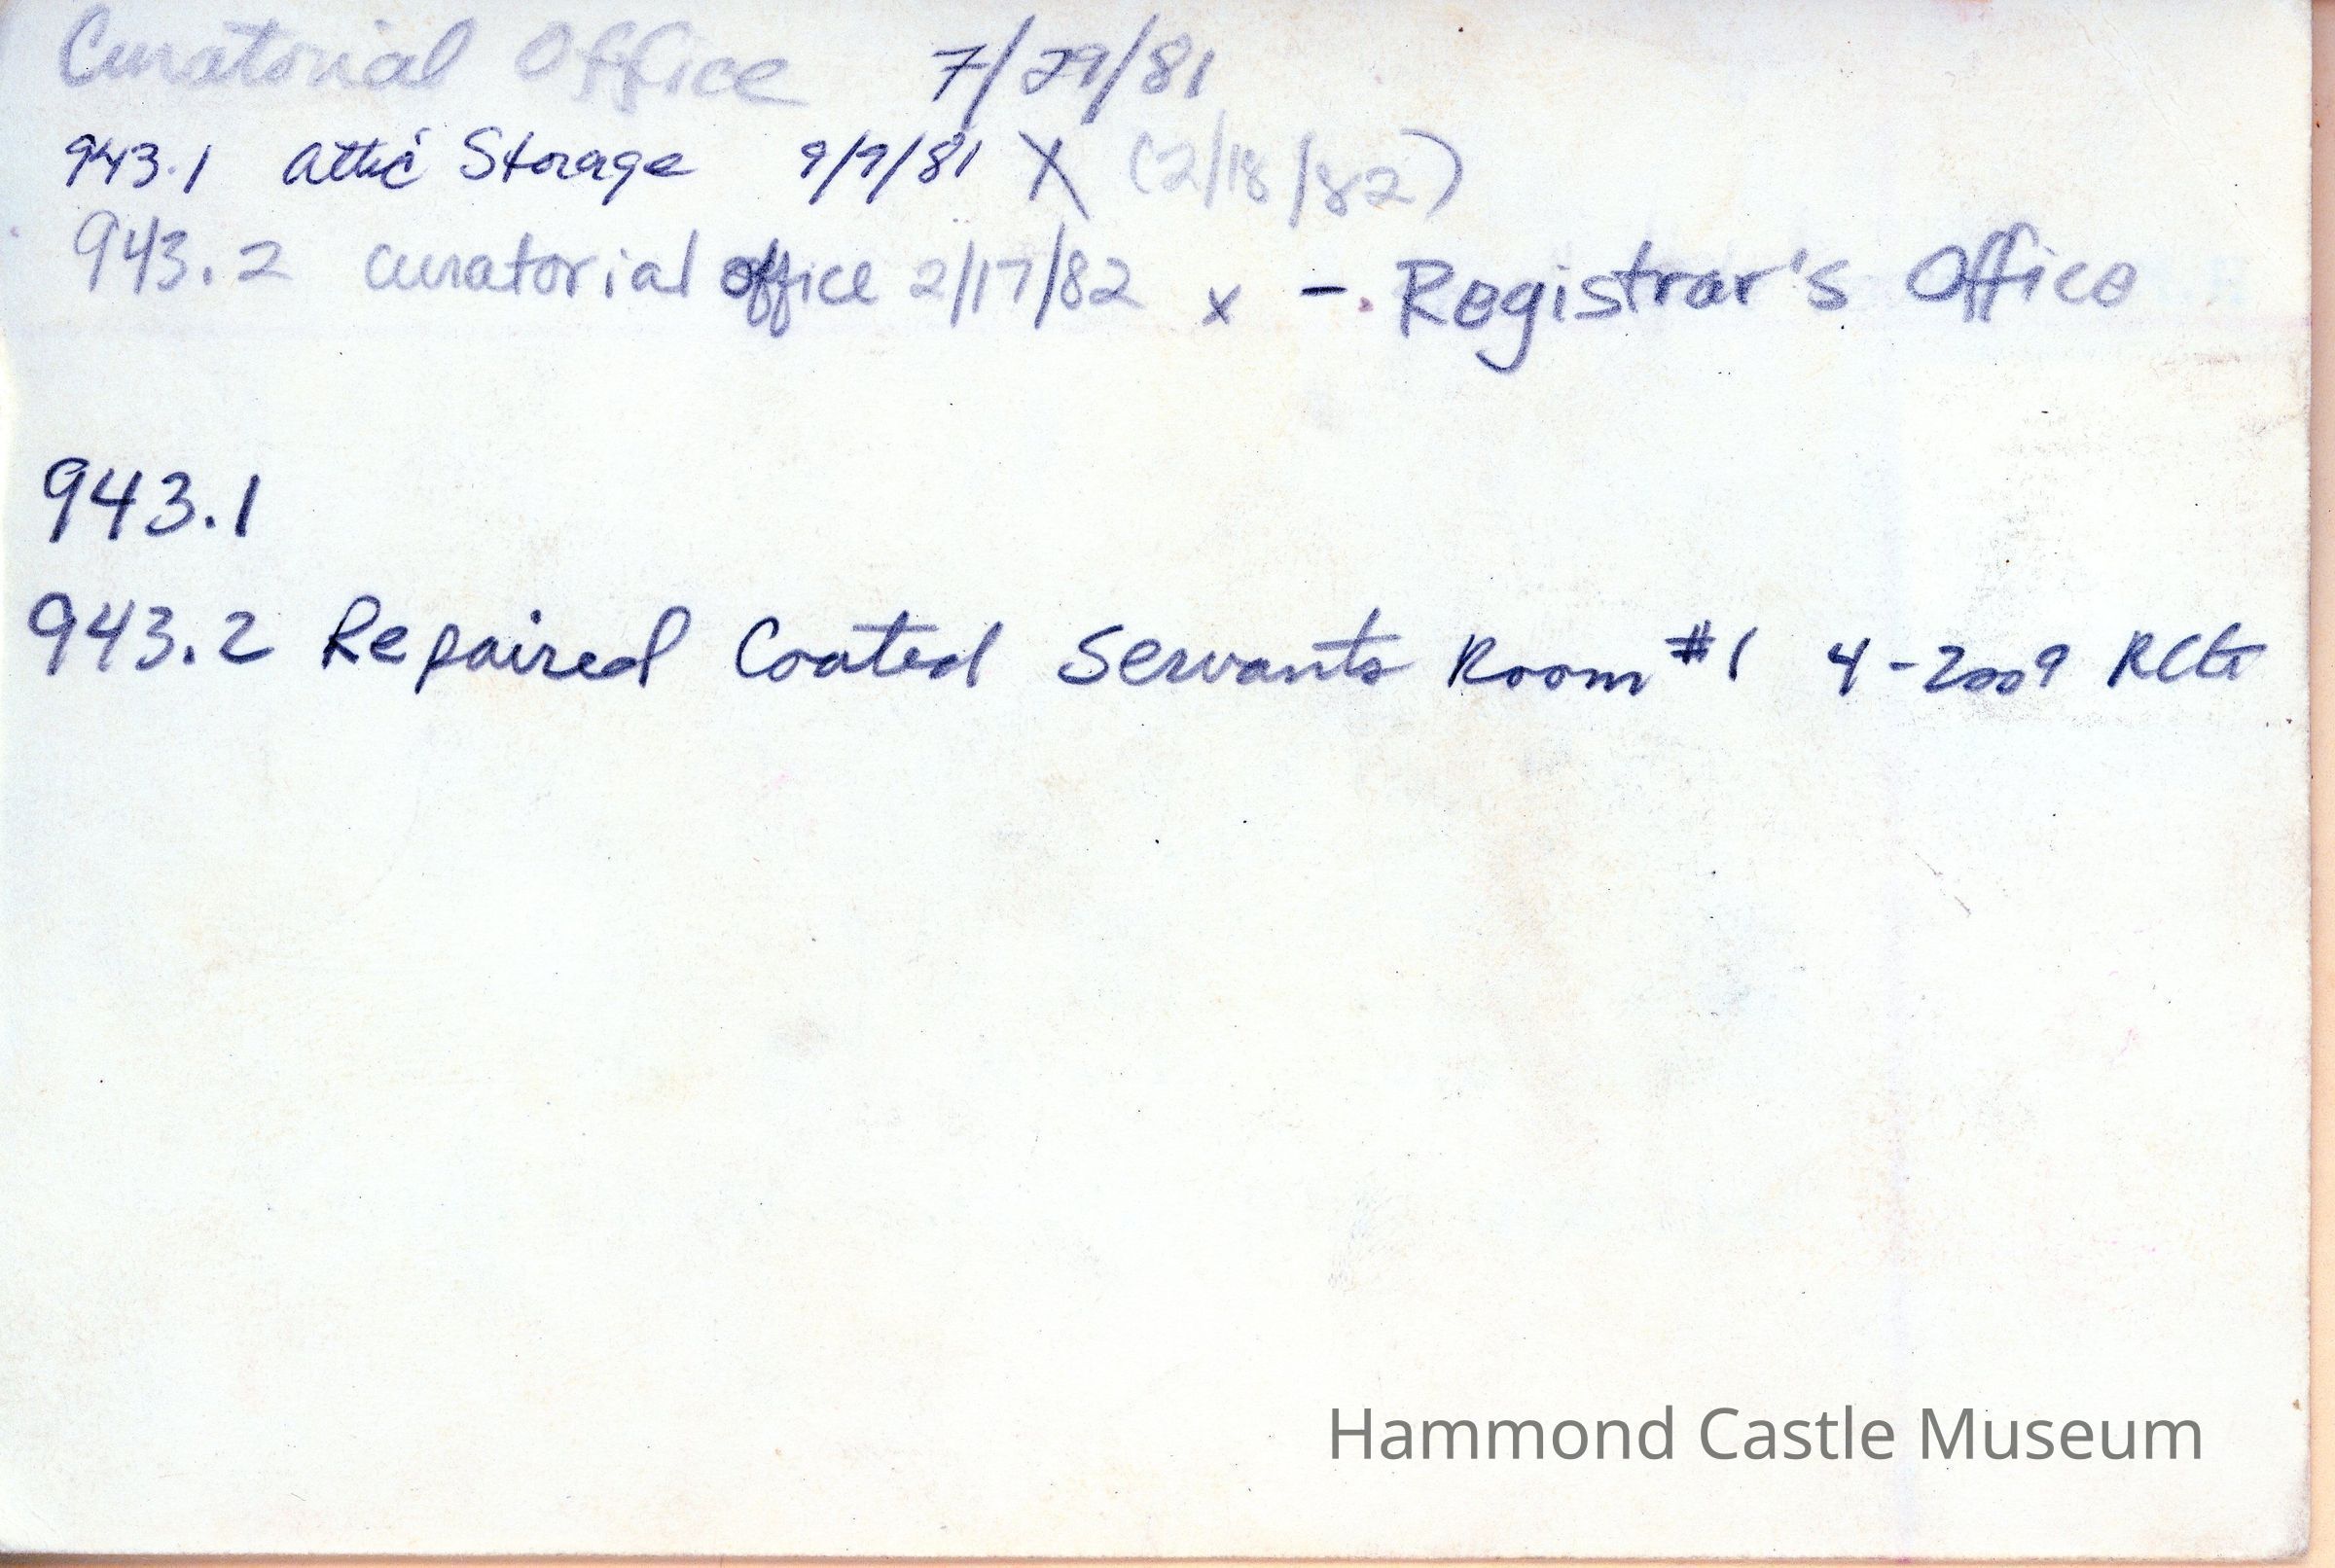 Curatorial Office 7/29/81
943.1 Attic Storage 9/9/81 X (2/18/82)
943.2 curatorial office 2/17/82 x - Registrar's Office
943.1
943.2 Repaired Coated Servants Room #1 4-2009 RCG
Hammond Castle Museum